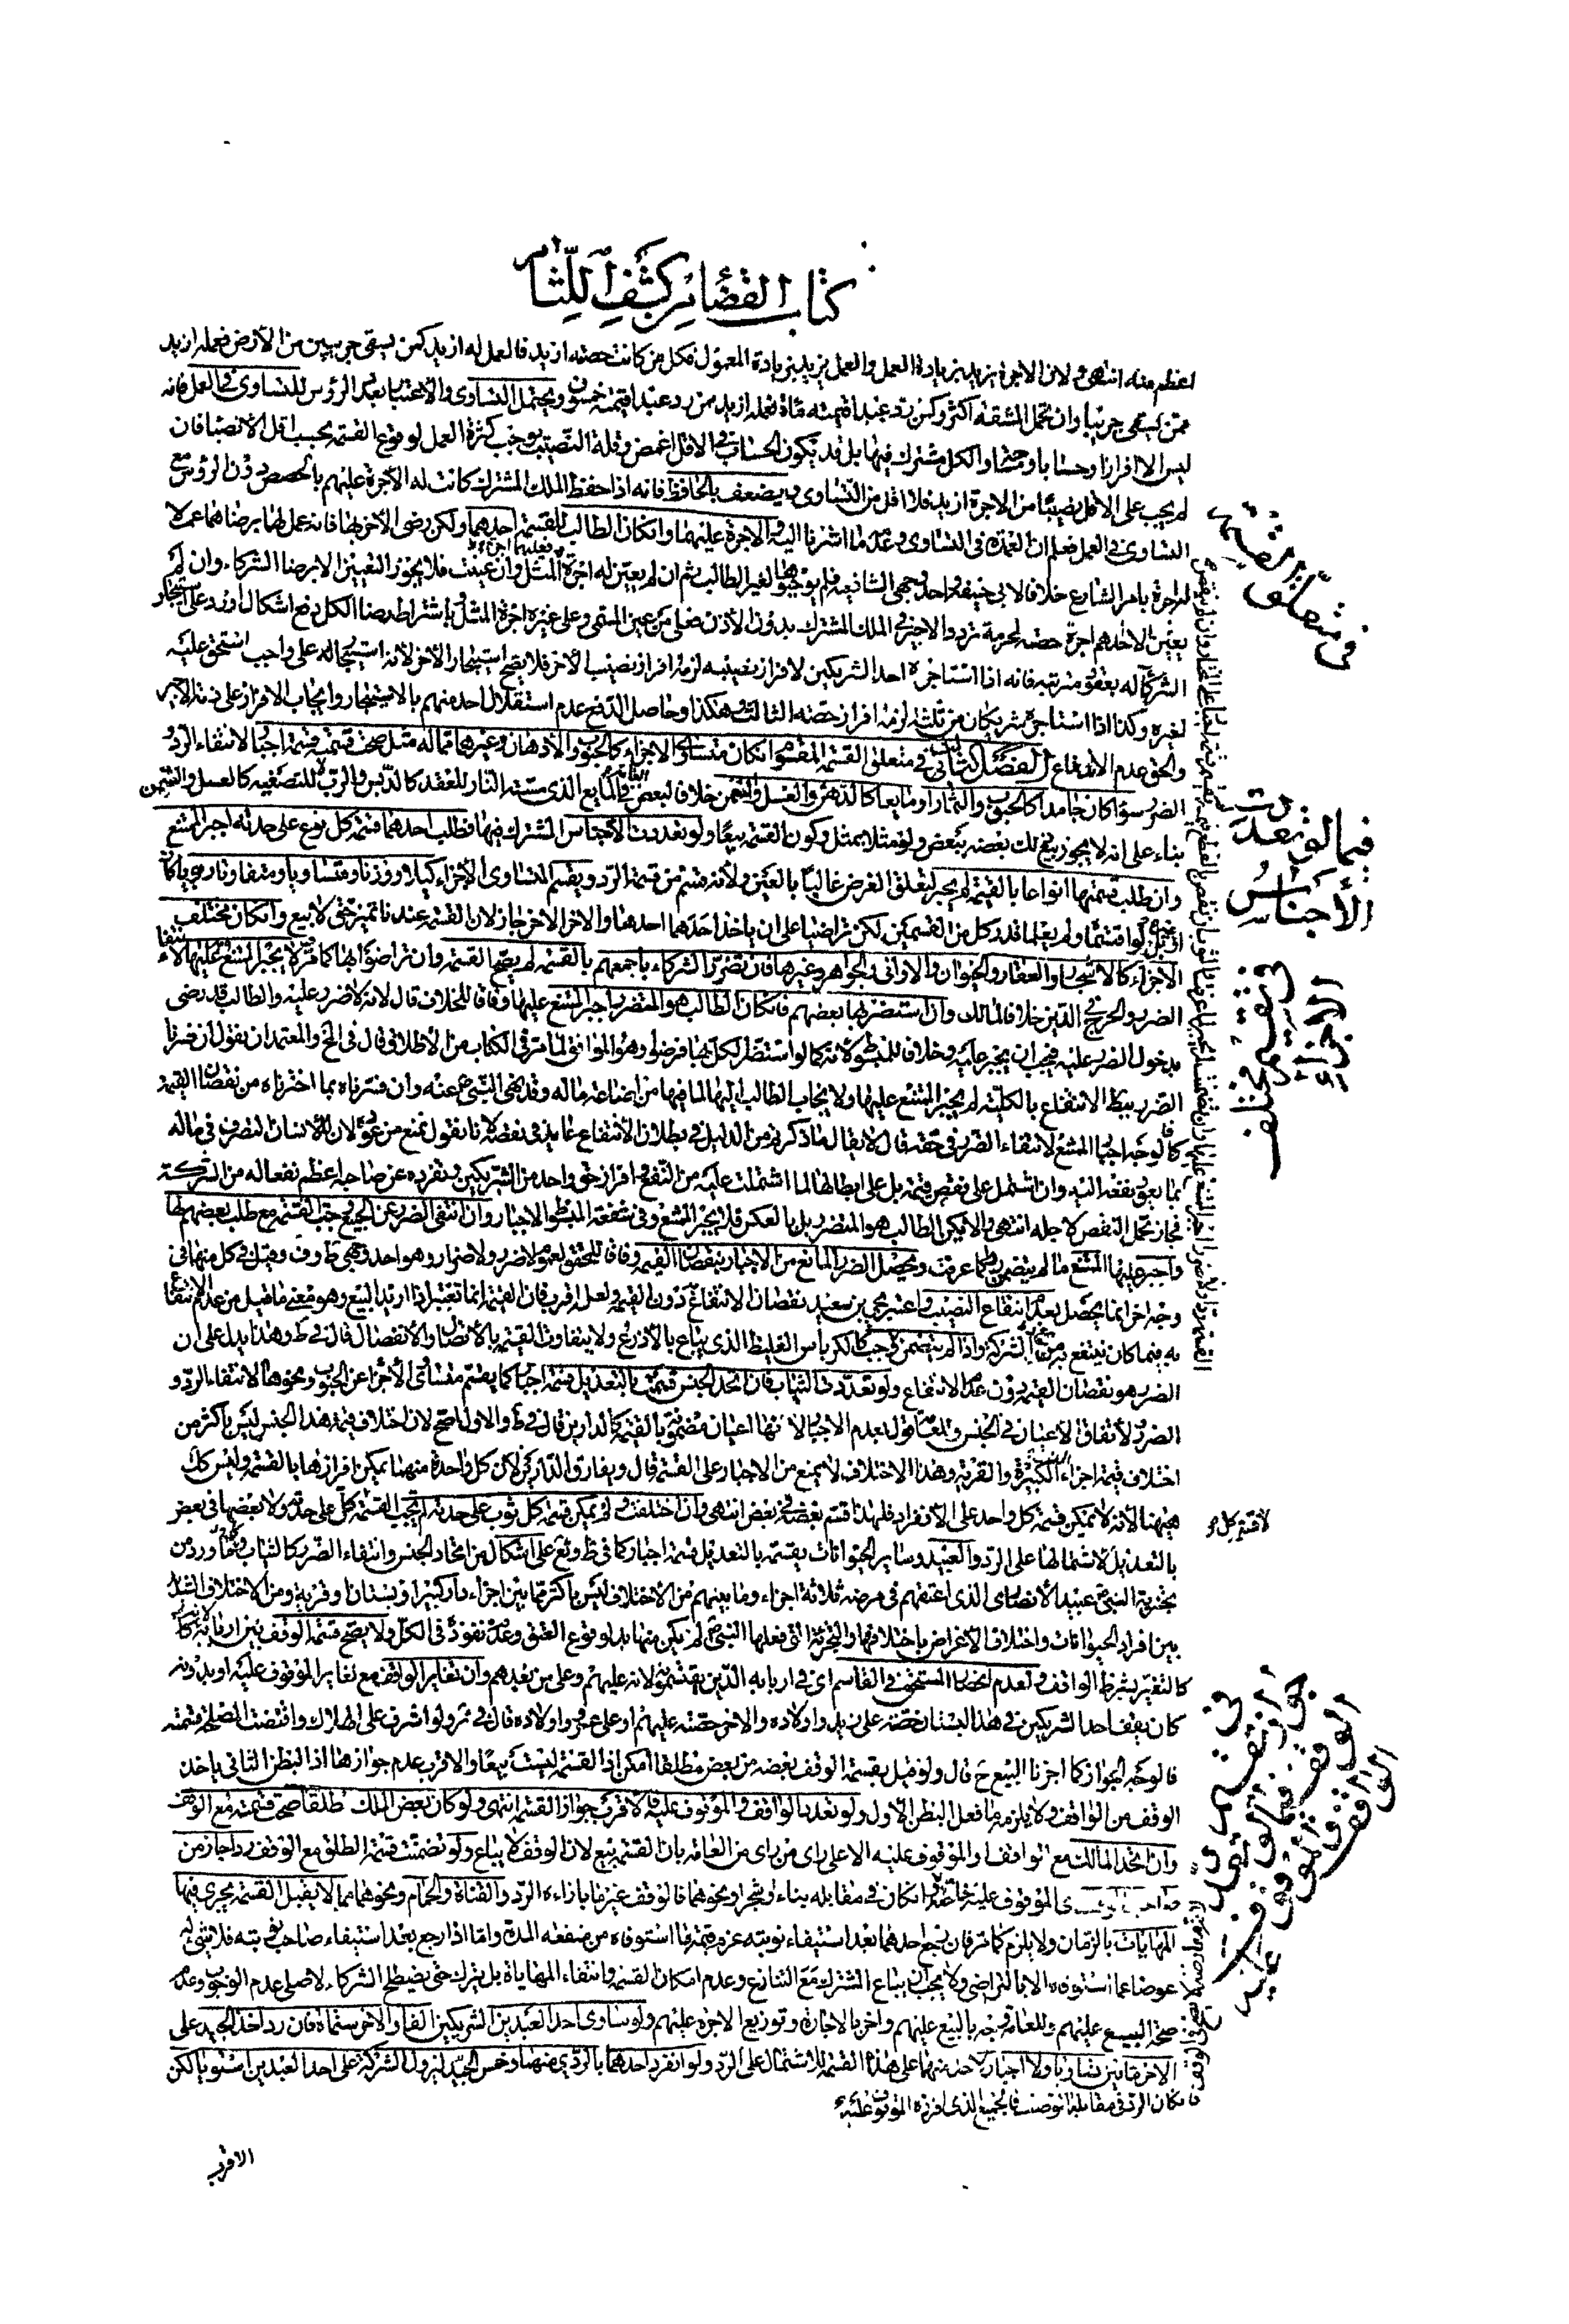 كتاب القضاء من كشف اللثام
اعظم منه انتهى ولان الاجرة تزيد بزيادة العمل والعمل يزيد بزيادة المعمول فكل من كانت حصته ازيد فالعمل له ازيد كمن يسقى جريبين من الارض فعمله ازيد
ممن يسقى جريبا وان تحمل المشقة اكثر وكمن رد عبدا قيمته مائة فعمله ازيد ممن رد عبدا قيمته خمسون ويحتمل التساوى والاعتبار بعدد الرؤس للتساوى فى العمل فانه
ليس الا افرازا وحسابا ومساحة والكل مشترك فيها بل قد يكون الحساب فى الاقل اغمض وقلة النصيب يوجب كثرة العمل لوقوع القسمة بحسب اقل الانصباء فان
لم يجب على الاقل نصيبا من الاجرة ازيد فلا اقل من التساوى ويضعف بالحافظ فانه اذا حفظ الملك المشترك كانت له الاجرة عليهم بالحصص دون الرؤس مع
التساوى فى العمل فعلم ان العمدة فى التساوى وعدمه ما اشرنا اليه والاجرة عليهما وان كان الطالب للقسمة احدهما ولكن رضى الاخر بها فانه عمل لهما برضاهما عملا
له اجرة بامر الشارع خلافا لابى حنيفة واحد وجهى الشافعية فلم يوجبوها لغير الطالب ثم ان لم يعين له اجرة فعليهما اجرة المثل وان عينت فلا يجوز التعيين الا برضا الشركاء وان لم
يعين الا احدهم اجرة حصته لحرمة تردد الاجير فى الملك المشترك بدون الاذن فعلى من عين المسمى وعلى غيره اجرة المثل وباشتراط رضا الكل دفع اشكال اورد على استيجار
الشركاء له بعقود مترتبة فانه اذا استاجره احد الشريكين لافراز نصيبه لزمه افراز نصيب الاخر فلا يصح استيجار الاخر لانه استيجاله على واجب استحق عليه
لغيره وكذا اذا استاجره شريكان من ثلثة لزمه افراز حصته الثالث وهكذا وحاصل الدفع عدم استقلال احد منهم بالاستيجار وايجاب الافراز على ذمة الاجير
والحق عدم الاندفاع الفصل الثانى فى متعلق القسمة المقسوم ان كان متساوى الاجزاء كالحبوب والادهان وغيرهما مما له مثل صحت قسمته قسمة اجبار لانتفاء الرد و
الضرر سواء كان جامدا كالحبوب والثمار او مايعا كالدهن والعسل والسمن خلافا لبعض العامة فى المايع الذى مسته النار للعقد كالدبس والرب لا للتصفية كالعسل والسمن
بناء على انه لا يجوز بيع ذلك بعضه ببعض ولو مثلا بمثل وكون القسمة بيعا ولو تعددت الاجناس المشترك فيها فطلب احدهما قسمة كل نوع على حدته اجبر الممتنع
وان طلب قسمتها انواعا بالقيمة لم يجبر لتعلق الغرض غالبا بالعين ولانه قسم من قسمة الرد ويقسم المتساوى الاجزاء كيلا ووزنا ومتساويا ومتفاوتا ربويا كان
الاجزاء كالاشجار والعقار والحيوان والاوانى والجواهر وغيرها فان تضرر الشركاء باجمعهم بالقسمة لم يصح القسمة وان تراضوا بها كما مر ولا يجبر الممتنع عليها لانتفاء
الضرر والحرج فى الدين خلافا لمالك وان استضر بها بعضهم فان كان الطالب هو المتضرر اجبر الممتنع عليها وفاقا للخلاف قال لانه لا ضرر عليه والطالب قد رضى
بدخول الضرر عليه فيجب ان يجبر عليه وخلافا للمبسوط لانه كما لو استضر الكل بها فرضوا وهو الموافق لما مر فى الكتاب من الاطلاق قال فى المخ والمعتمد ان نقول ان فسرنا
الضرر ببطلان الانتفاع بالكلية لم يجبر الممتنع عليها ولا يجاب الطالب اليها لما فيها من اضاعة ماله وقد نهى النبى ص عنه وان فسرناه بما اخترناه من نقصان القيمة
فالوجه اجبار الممتنع لانتفاء الضرر فى حقه قال لا يقال ما ذكرتم من الدليل فى بطلان الانتفاع عايد فى نقصه لانا نقول نمنع من عوده لان للانسان التصرف فى ماله
بما يعود نفعه اليه وان اشتمل على نقص قيمة بل على ابطالها لما اشتملت عليه من النفع وافراز حق واحد من الشريكين وتفرده عن صاحبه اعظم نفعا له من الشركة
فجاز تحمل النقص لاجله انتهى والا يكن الطالب هو المتضرر بل بالعكس فلا يجبر الممتنع وفى شفعة المبسوط الاجبار وان انتفى الضرر عن الجميع وجب القسمة مع طلب بعضهم لها
واجبر عليها الممتنع ما لم يتضمن ردا كما عرفت ويحصل الضرر المانع من الاجبار بنقصان القيمة وفاقا للمحقق لعموم لا ضرر ولا ضرار وهو احد وجهى ط وف وقيل فى كل منهما فى
وجه اخر انما يحصل بعدم انتفاع النصيب واعتبر يحيى بن سعيد نقصان الانتفاع دون القيمة ولعله اقرب فان القيمة انما تعتبر اذا اريد البيع وهو معنى ما قيل من عدم الانتفاع
به فيما كان ينتفع به مع الشركة واذا لم يتضمن وجب كالكرباس الغليظ الذى يباع بالاذرع ولا يتفاوت القيمة بالاتصال والانفصال قال فى ط وهذا يدل على ان
الضرر هو نقصان القيمة دون عدم الانتفاع ولو تعددت الثياب فان اتحد الجنس قسمت بالتعديل قسمة اجبار كما يقسم متساوى الاجزاء عن الحبوب ونحوها لانتفاء الرد و
الضرر لاتفاق الاعيان فى الجنس وللعامة قول بعدم الاجبار لانها اعيان مضمونة بالقيمة كالدارين قال فى ط والاول اصح لان اختلاف قيمة هذا الجنس ليس باكثر من
اختلاف قيمة اجزاء الدار الكبيرة والقرية وهذا الاختلاف لا يمنع من الاجبار على القسمة قال ويفارق الدار كن لان كل واحدة منهما يمكن افرازها بالقسمة وليس كك
هيهنا لانه لا يمكن قسمة كل واحد على الانفراد فلهذا قسم بعضه فى بعض انتهى وان اختلفت ولم يمكن قسمة كل ثوب على حدته لم يجب القسمة كل على حدته ولا بعضها فى بعض
بالتعديل لاشتمالها على الرد والعبيد وساير الحيوانات يقسم بالتعديل قسمة اجبار كما فى ط وقع على اشكال من اتحاد الجنس وانتفاء الضرر كالثياب وكما ورد من
تجزية النبى ص عبيد الانصارى الذى اعتقهم فى مرضه ثلاثة اجزاء وما بينهم من الاختلاف ليس باكثر مما بين اجزاء دار كبيرة او بستان او قرية ومن الاختلاف الشديد
بين افراد الحيوانات واختلاف الاغراض باختلافها والتجزئة التى فعلها النبى ص لم يكن منها بد لوقوع العتق وعدم نفوذه فى الكل ولا يصح قسمة الوقف بين اربابه لانه
كالتغيير بشرط الواقف ولعدم انحصار المستحق فى القاسم اى فى اربابه الذين يقتسمونه لانه عليهم وعلى من بعدهم وان تغاير الواقف مع تغاير الموقوف عليه او بدونه
كان يقف احد الشريكين فى هذا البستان حصته على زيد واولاده والاخر حصته عليهم او على عمرو واولاده قال فى ير ولو اشرف على الهلاك واقتضت المصلحة قسمته
فالوجه الجواز كما اجزنا البيع ح قال ولو قيل بقسمة الوقف بعضه من بعض مطلقا امكن اذ القسمة ليست بيعا والاقرب عدم جوازها اذ البطن الثانى ياخذ
الوقف من الواقف ولا يلزمه ما فعل البطن الاول ولو تعدد الواقف والموقوف عليه فالاقرب جواز القسمة انتهى ولو كان بعض الملك طلقا صحت قسمته مع الوقف
وان اتحد المالك مع الواقف او الموقوف عليه الا على راى من راى من العامة بان القسمة بيع لان الوقف لا يباع ولو تضمنت قسمة الطلق مع الوقف ردا جاز من
الموقوف عليه خاصة وان كان فى مقابله بناء او شجر او نحوهما فالوقف غير ما بازاءه الرد والقناة والحمام ونحوهما مما لا يقبل القسمة يجرى فيها
المهاياة بالزمان ولا يلزم كما مر فان رجع احدهما بعد استيفاء نوبته غرم قيمة ما استوفاه من منفعة المدة واما اذا رجع بعد استيفاء صاحب نوبته فلا شئ له
عوضا عما استوفاه الا بالتراضى ولا يجب ان يباع المشترك مع التنازع وعدم امكان القسمة وانتفاء المهاياة بل يترك حتى يصطلح الشركاء لاصل عدم الوجوب وعدم
صحة البيع عليهم وللعامة وجه بالبيع عليهم واخر بالاجارة وتوزيع الاجرة عليهم ولو ساوى احد العبدين الشريكين الفا والاخر ستمائة فان رد اخذ الجيد على
الاخر مائتين تساويا ولا اجبار لاحد منهما على هذه القسمة للاشتمال على الرد ولو انفرد احدهما بالردى منهما وخمس الجيد ليزول الشركة على احد العبدين استويا لكن
فان كان الرد فى مقابلة الوصف فالجميع الذى افرزه الموقوف عليه
الاقرب
فى متعلق القسمة
فيما لو تعددت
الاجناس
لا قسم كل